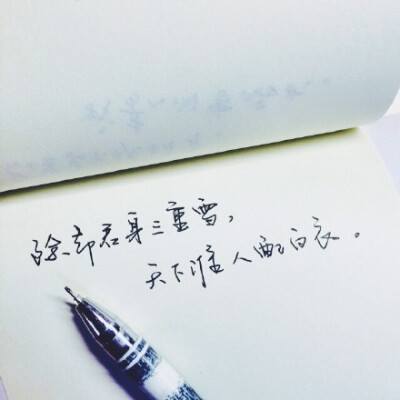 除却君身三重雪，
天下谁人配白衣。